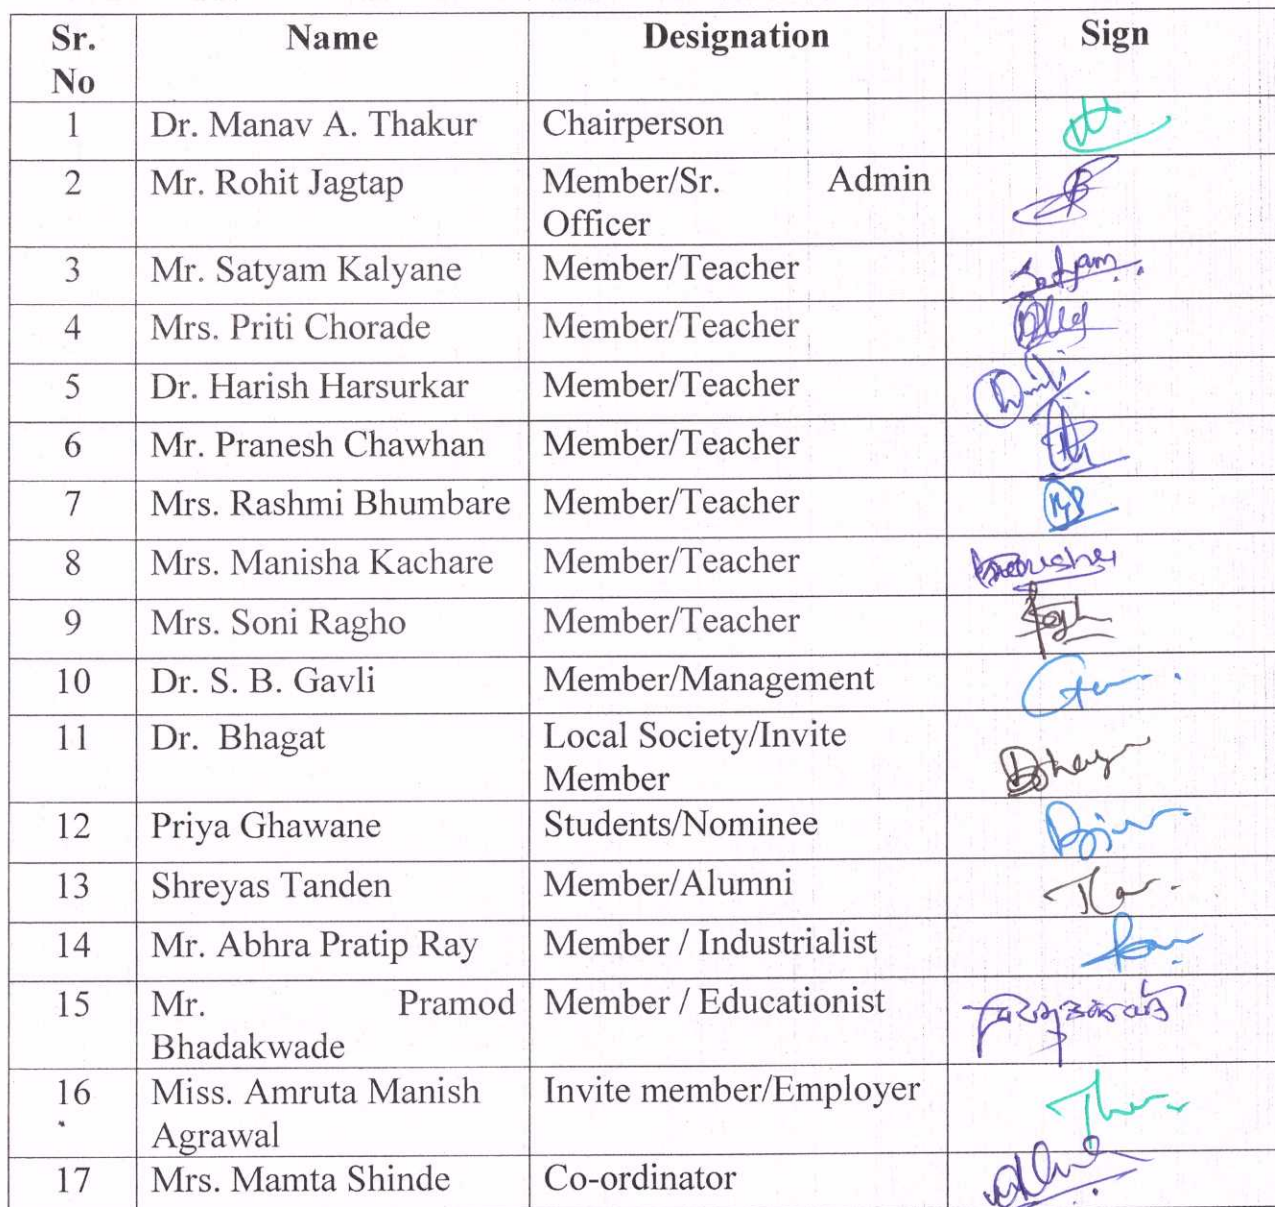 Sr. No Name Designation Sign
1 Dr. Manav A. Thakur Chairperson
2 Mr. Rohit Jagtap Member/Sr. Admin
Officer
3 Mr. Satyam Kalyane Member/Teacher Satyam
4 Mrs. Priti Chorade Member/Teacher
5 Dr. Harish Harsurkar Member/Teacher
6 Mr. Pranesh Chawhan Member/Teacher
7 Mrs. Rashmi Bhumbare Member/Teacher
8 Mrs. Manisha Kachare Member/Teacher
9 Mrs. Soni Ragho Member/Teacher
10 Dr. S. B. Gavli Member/Management
11 Dr. Bhagat Local Society/Invite
Member
12 Priya Ghawane Students/Nominee
13 Shreyas Tanden Member/Alumni
14 Mr. Abhra Pratip Ray Member / Industrialist
15 Mr. Pramod Member / Educationist
Bhadakwade
16 Miss. Amruta Manish Invite member/Employer
Agrawal
17 Mrs. Mamta Shinde Co-ordinator